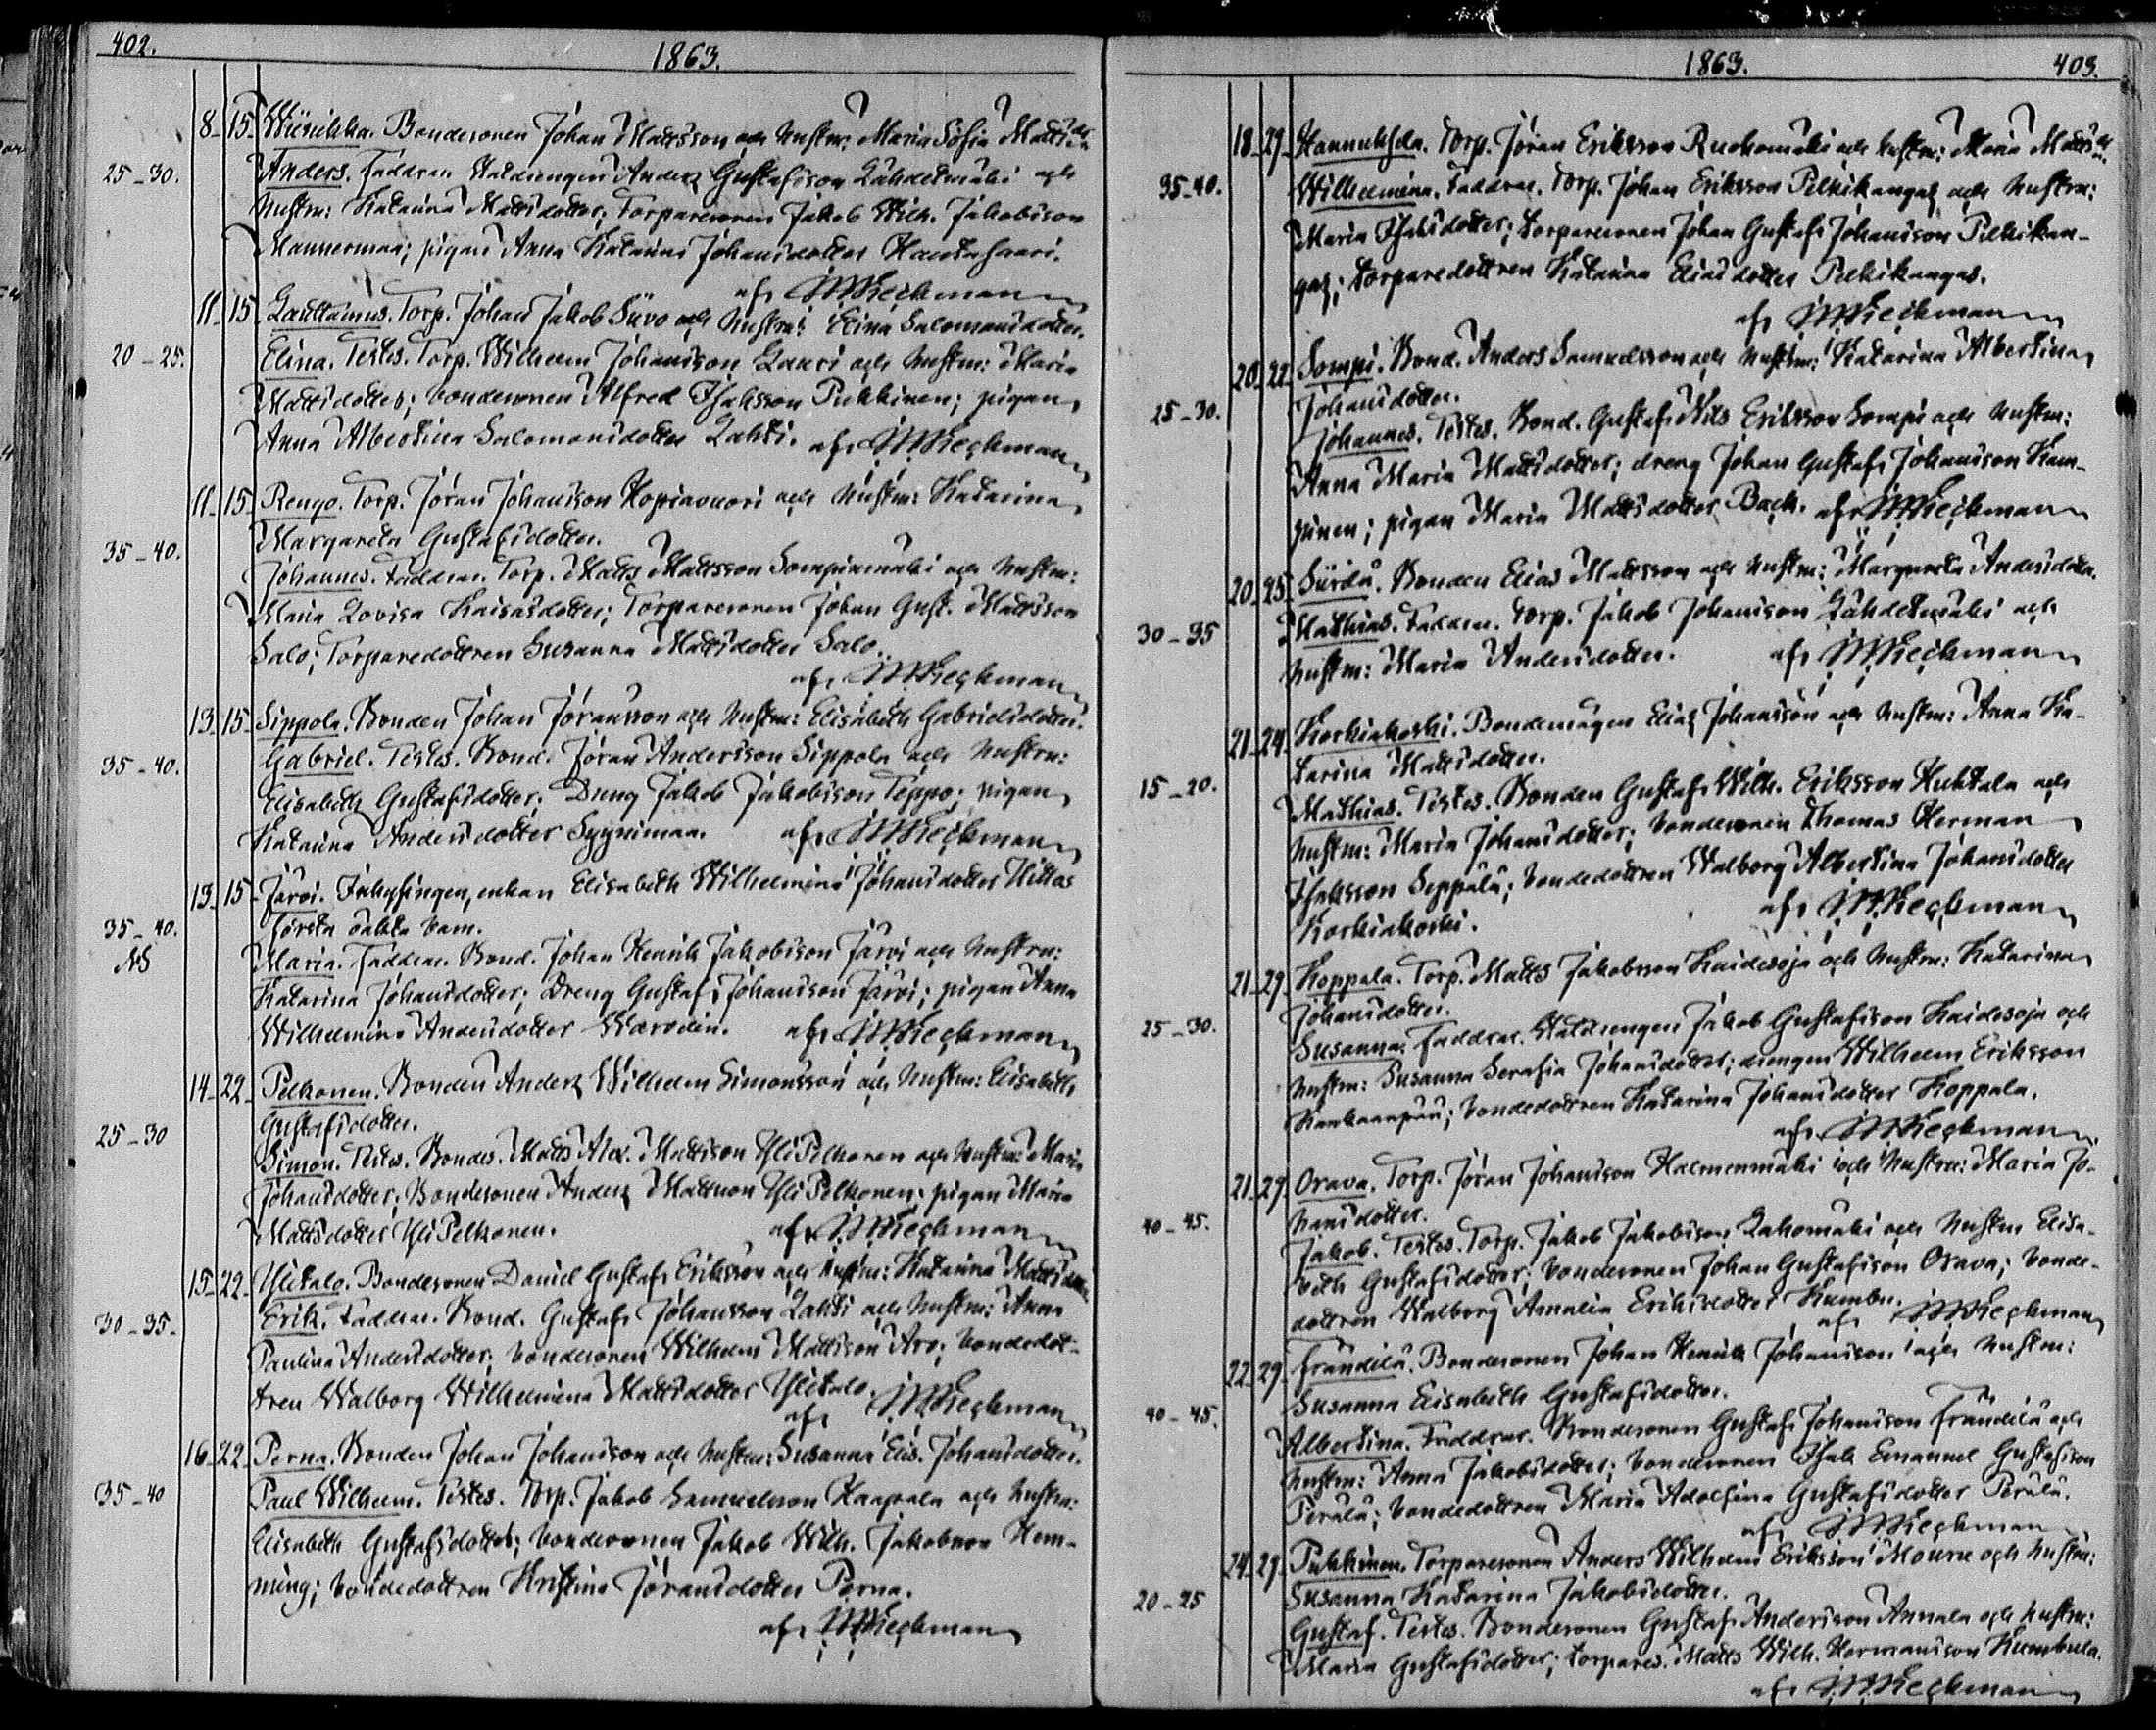 402.
1863.
8. 15. Wiirikka. Bondesonen Johan Mattsson och hustru: Maria Sofia Mattsdr.
25-30. Anders. Faddrar. Anders Gustafsson Lähdetmäki och
hustru: Katarina Mattsdotter; Torparesonen Jakob Wilh. Jakobsson
Mannermaa; pigan Anna Katarina Johansdotter Hautasaari.
af
11. 15. Torp. Johan Jakob Siivo och hustru: Elina Salomonsdotter.
20-25. Elina. Testes. Torp. Wilhelm Johansson Lauri och hustru: Maria
Mattsdotter; bondesonen Alfred Isaksson Pukkinen; pigan
Anna Albertina Salomonsdotter Lahti. af
11. 15. Rengo. Torp. Jöran Johansson och hustru: Katarina
Margareta Gustafsdotter.
35-40. Johannes. Faddrar. Torp. Matts Mattsson Sompinmäki och hustru:
Maria Lovisa Kaisasdotter; Torparesonen Johan Gust. Mattsson
Salo; Torparedottren Susanna Mattsdotter Salo.
af
13. 15. Sippola. Bonden Johan Jöransson och hustru: Elisabeth Gabrielsdotter.
35-40. Gabriel. Testes. Bond. Jöran Andersson Sippola och hustru:
Elisabeth Gustafsdotter; Dreng Jakob Jakobsson Teppo; pigan
Katarina Andersdotter Syynimaa. af
13. 15. Järvi. enkan Elisabeth Wilhelmina Johansdotter
35-40. första oäkta barn.
Maria. Faddrar. Bond. Johan Henrik Jakobsson Järvi och hustru:
Katarina Johansdotter; Dreng Gustaf Johansson Järvi; pigan Anna
Wilhelmina Andersdotter. af
14. 22. Pelkonen. Bonden Anders Wilhelm Simonsson och hustru: Elisabeth
Gustafsdotter.
25-30 Simon. Testes. Bondes. Matts Alex. Mattsson YliPelkonen och hustru: Maria
Johansdotter; Bondesonen Anders Mattsson YliPelkonen; pigan Maria
Mattsdotter YliPelkonen. af
15. 22. Ylitalo. Bondesonen Daniel Gustaf Eriksson och hustru: Katarina Mattsdotter
30-35. Erik. Faddrar. Bond. Gustaf Johansson Lahti och hustru: Anna
Paulina Andersdotter; bondesonen Wilhelm Mattsson Aro; bondedot-
tren Walborg Wilhelmina Mattsdotter Ylitalo.
af
16. 22. Perna. Bonden Johan Johansson och hustru: Susanna Elis. Johansdotter.
35-40 Paul Wilhelm. Testes. Torp. Jakob Samuelsson Haapala och hustru:
Elisabeth Gustafsdotter; bondesonen Jakob Wilh. Jakobsson Hem-
ming; bondedottren Kristina Jöransdotter Perna.
af
1863.
403.
18. 29. Hannuksela. Torp. Jöran Eriksson Ruohomäki och hustru: Maria Mattsdr.
35-40. Wilhelmina. Faddrar. Torp. Johan Eriksson Pelkikangas och hustru:
Maria Isaksdotter; torparesonen Johan Gustaf Johansson Pelkikan-
gas; torparedottren Katarina Eliasdotter Pelkikangas.
af
20. 22. Sompi. Bond. Anders Samuelsson och hustru: Katarina Albertina
Johansdotter.
25-30. Johannes. Testes. Bond. Gustaf Nils Eriksson Sompi och hustru:
Anna Maria Mattsdotter; dreng Johan Gustaf Johansson Kam-
pinen; pigan Maria Mattsdotter Back. af
20. 25. Siirdä. Bonden Elias Mattsson och hustru: Margareta Andersdotter.
30-35 Mathias. Faddrar. Torp. Jakob Johansson Lähdetmäki och
hustru: Maria Andersdotter. af
21. 24. Korkiakoski. Bondemågen Elias Johansson och hustru: Anna Ka-
tarina Mattsdotter.
15-20. Mathias. Testes. Bonden Gustaf Wilh. Eriksson Huhtala och
hustru: Maria Johansdotter; bondesonen Thomas Herman
Isaksson Seppälä; bondedottren Walborg Albertina Johansdotter
Korkiakoski. af
21. 29. Koppala. Torp. Matts Jakobsson Kaidesoja och hustru: Katarina
Johansdotter.
25-30. Susanna. Faddrar. Jakob Gustafsson Kaidesoja och
hustru: Susanna Serafia Johansdotter; drengen Wilhelm Eriksson
Kankaanpää; bondedottren Katarina Johansdotter Koppala.
af
21. 29. Orava. Torp. Jöran Johansson Halmenmäki och hustru: Maria Jo-
hansdotter.
40-45. Jakob. Testes. Torp. Jakob Jakobsson Lahomäki och hustru Elisa-
beth Gustafsdotter; bondesonen Johan Gustafsson Orava; bonde-
dottren Walborg Amalia Eriksdotter. af
22. 29. Frändilä. Bondesonen Johan Henrik Johansson och hustru:
Susanna Elisabeth Gustafsdotter.
40-45. Albertina. Faddrar. Bondesonen Gustaf Johansson Frändilä och
hustru: Anna Jakobsdotter; bondesonen Isak Emanuel Gustafsson
Perälä; bondedottren Maria Adolfina Gustafsdotter Perälä.
af
24. 29. Pukkinen. Torparesonen Anders Wilhelm Eriksson och hustru:
Susanna Katarina Jakobsdotter.
20-25 Gustaf. Testes. Bondesonen Gustaf Andersson Annala och hustru:
Maria Gustafsdotter; torpares. Matts Wilh. Hermansson Kumbula.
af